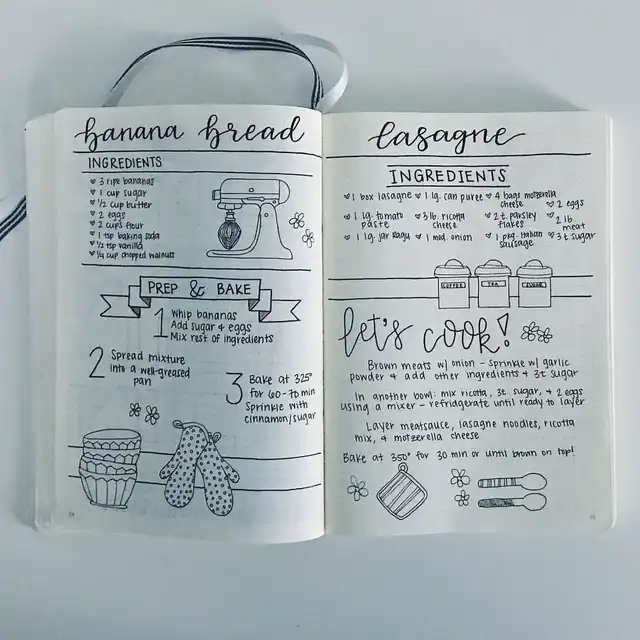 banana bread
INGREDIENTS
♥ 3 ripe bananas
♥ 1 cup sugar
♥ 1/2 cup butter
♥ 2 eggs
♥ 2 cups flour
♥ 1 tsp baking soda
♥ 1/2 tsp vanilla
♥ 1/4 cup chopped walnuts
PREP & BAKE
1 Whip bananas
Add sugar & eggs
Mix rest of ingredients
2 Spread mixture
into a well-greased
pan
3 Bake at 325°
for 60-70 min
Sprinkle with
cinnamon/sugar
lasagne
INGREDIENTS
♥ 1 box lasagne
♥ 1 lg. tomato
paste
♥ 1 lg. jar Ragu
♥ 1 lg. can puree
♥ 3 lb. ricotta
cheese
♥ 1 med. onion
♥ 4 bags motzerella
cheese
♥ 2 t. parsley
flakes
♥ 1 pkg. italian
sausage
♥ 2 eggs
♥ 2 lb.
meat
♥ 3 t. sugar
COFFEE
TEA
SUGAR
let's cook!
Brown meats w/ onion - sprinkle w/ garlic
powder & add other ingredients & 3t sugar
In another bowl: mix ricotta, 3t. sugar, & 2 eggs
using a mixer - refridgerate until ready to layer
Layer meatsauce, lasagne noodles, ricotta
mix, & motzerella cheese
Bake at 350° for 30 min or until brown on top!